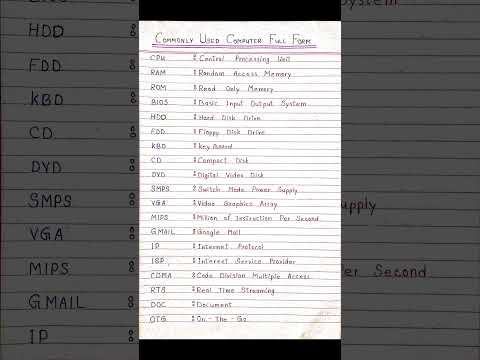 COMMONLY USED COMPUTER FULL FORM
CPU : Central Processing Unit
RAM : Random Access Memory
ROM : Read Only Memory
BIOS : Basic Input Output System
HDD : Hard Disk Drive
FDD : Floppy Disk Drive
KBD : Key Board
CD : Compact Disk
DVD : Digital Video Disk
SMPS : Switch Mode Power Supply
VGA : Video Graphics Array
MIPS : Million of Instruction Per Second
GMAIL : Google Mail
IP : Internet Protocol
ISP : Internet Service Provider
CDMA : Code Division Multiple Access
RTS : Real Time Streaming
DOC : Document
OTG : On - The - Go
HDD :
FDD :
KBD :
CD :
DVD :
SMPS :
VGA :
MIPS :
GMAIL :
IP :
System
Supply
Per Second